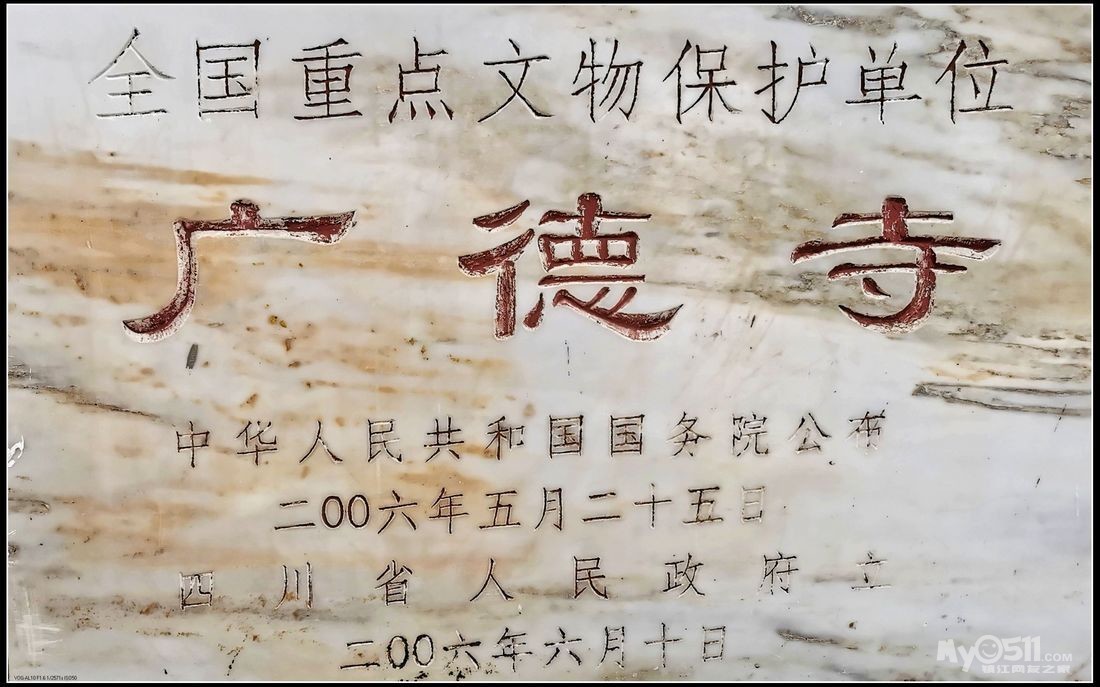 全国重点文物保护单位
广德寺
中华人民共和国国务院公布
二00六年五月二十五日
四川省人民政府立
二00六年六月十日
My0511.COM
镇江网友之家
VOG-AL10 F1.6 1/2571s ISO50